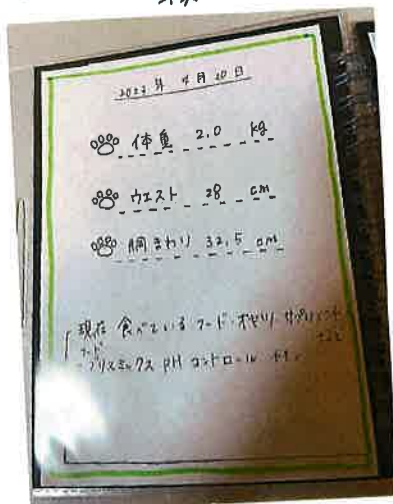 2023年 4月20日
体重 2.0 kg
ウエスト 28 cm
胴まわり 32.5 cm
現在 食べている フード・オヤツ・サプリメント
など
フード
pHコントロール